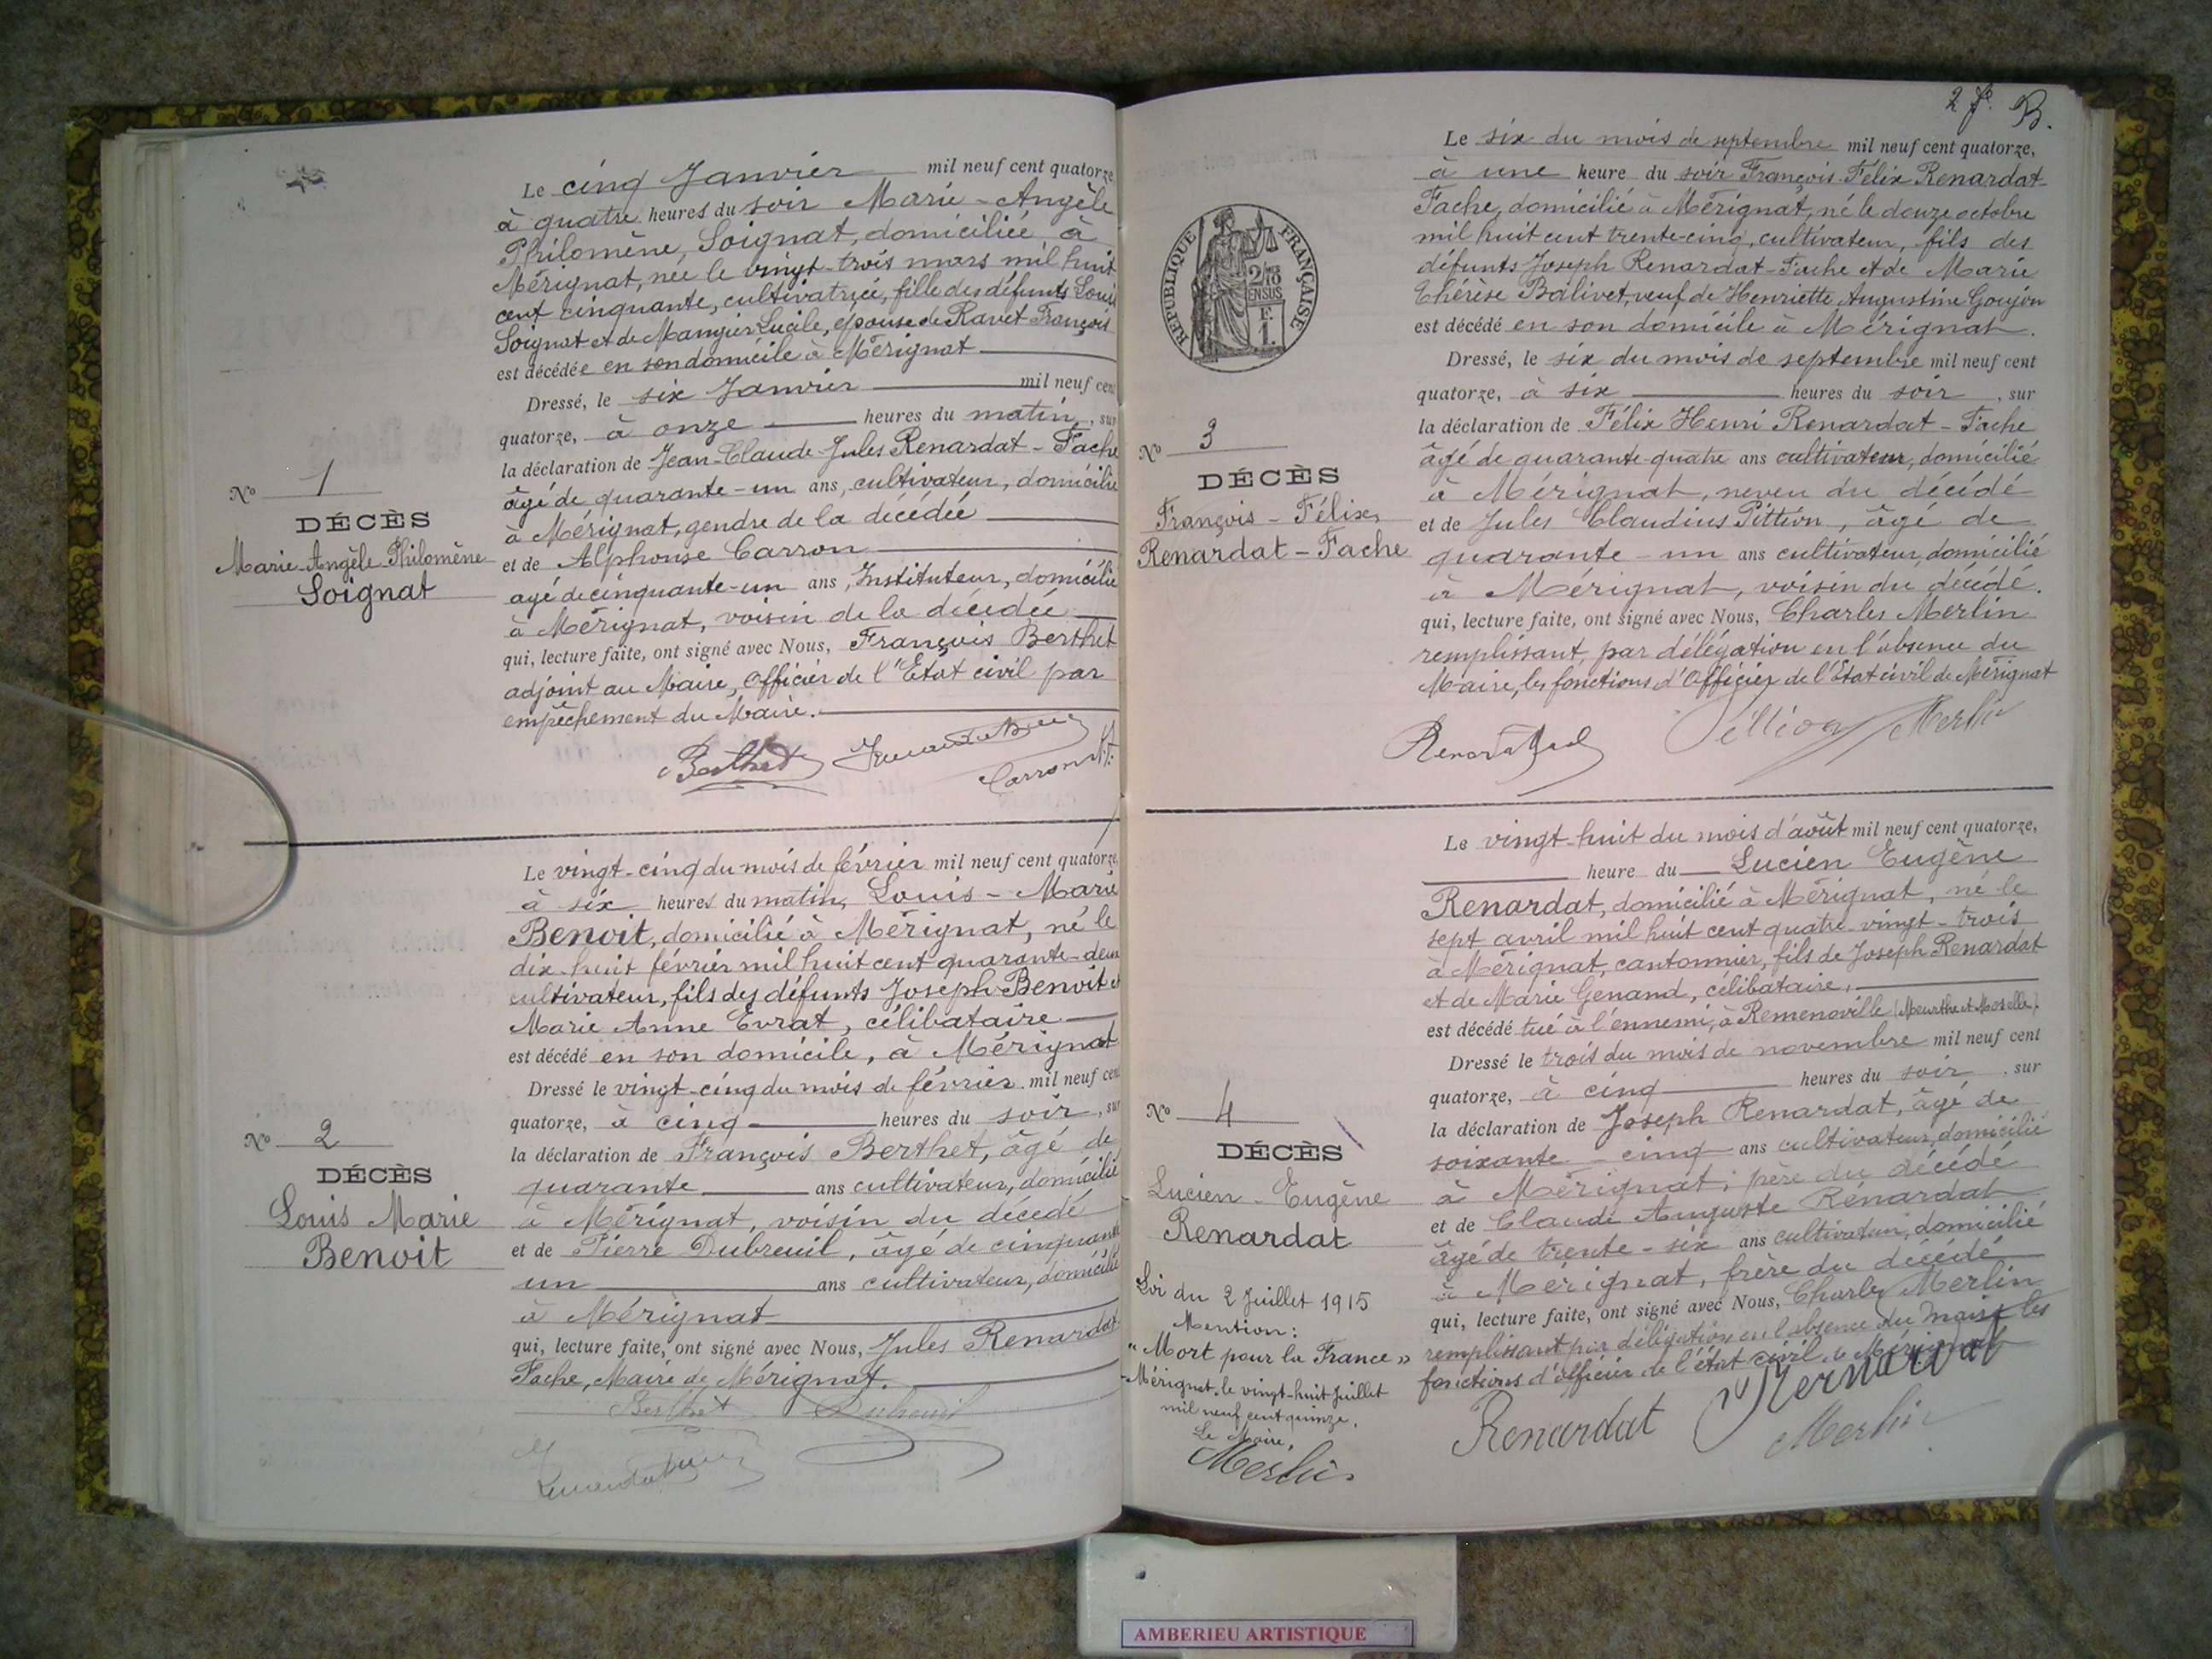 Le cinq Janvier mil neuf cent quatorze
à quatre heures du soir Marie-Angèle
Philomène, Soignat, domiciliée à
Mérignat, née le vingt-trois mars mil huit
cent cinquante, cultivatrice, fille des défunts Louis
Soignat et de Mangier Lucile, épouse de Ravet François
est décédée en son domicile à Mérignat
Dressé, le six Janvier mil neuf cent
quatorze, à onze heures du matin, sur
la déclaration de Jean-Claude-Jules Renardat-Fache
âgé de quarante-un ans, cultivateur, domicilié
à Mérignat, gendre de la décédée
et de Alphonse Carron
âgé de cinquante-un ans, Instituteur, domicilié
à Mérignat, voisin de la décédée
qui, lecture faite, ont signé avec Nous, François Berthet
adjoint au Maire, Officier de l'Etat civil par
empêchement du Maire.
Berthet
Carron
No 1
DÉCÈS
Marie-Angèle Philomène
Soignat
Le vingt-cinq du mois de février mil neuf cent quatorze,
à six heures du matin, Louis-Marie
Benoit, domicilié à Mérignat, né le
dix-huit février mil huit cent quarante-deux
cultivateur, fils des défunts Joseph Benoit et
Marie Anne Evrat, célibataire
est décédé en son domicile, à Mérignat
Dressé le vingt-cinq du mois de février mil neuf cent
quatorze, à cinq heures du soir, sur
la déclaration de François Berthet, âgé de
quarante ans cultivateur, domicilié
à Mérignat, voisin du décédé
et de Pierre Dubreuil, âgé de cinquante
un ans cultivateur, domicilié
à Mérignat
qui, lecture faite, ont signé avec Nous, Jules Renardat
Fache, Maire de Mérignat.
Berthet Dubreuil
No 2
DÉCÈS
Louis Marie
Benoit
2 f. B.
Le six du mois de septembre mil neuf cent quatorze,
à une heure du soir François-Félix Renardat-
Fache, domicilié à Mérignat, né le douze octobre
mil huit cent trente-cinq, cultivateur, fils des
défunts Joseph Renardat-Fache et de Marie
Thérèse Balivet, veuf de Henriette Augustine Goujon
est décédé en son domicile à Mérignat.
Dressé, le six du mois de septembre mil neuf cent
quatorze, à six heures du soir, sur
la déclaration de Félix Henri Renardat-Fache
âgé de quarante-quatre ans cultivateur, domicilié
à Mérignat, neveu du décédé
et de Jules Claudius Pittion, âgé de
quarante-un ans cultivateur, domicilié
à Mérignat, voisin du décédé.
qui, lecture faite, ont signé avec Nous, Charles Merlin
remplissant, par délégation en l'absence du
Maire, les fonctions d'Officier de l'Etat civil de Mérignat
Pittion Merlin
RÉPUBLIQUE FRANÇAISE
F.
1.
No 3
DÉCÈS
François-Félix
Renardat-Fache
Le vingt-huit du mois d'août mil neuf cent quatorze,
heure du Lucien Eugène
Renardat, domicilié à Mérignat, né le
sept avril mil huit cent quatre-vingt-trois
à Mérignat, cantonnier, fils de Joseph Renardat
et de Marie Genand, célibataire,
est décédé tué à l'ennemi, à Remenoville (Meurthe et Moselle).
Dressé le trois du mois de novembre mil neuf cent
quatorze, à cinq heures du soir, sur
la déclaration de Joseph Renardat, âgé de
soixante-cinq ans cultivateur, domicilié
à Mérignat, père du décédé
et de Claude Auguste Renardat
âgé de trente-six ans cultivateur, domicilié
à Mérignat, frère du décédé
qui, lecture faite, ont signé avec Nous, Charles Merlin
remplissant par délégation en l'absence du maire les
fonctions d'officier de l'état civil de Mérignat
Renardat Renardat
Merlin
No 4
DÉCÈS
Lucien-Eugène
Renardat
Loi du 2 Juillet 1915
Mention:
"Mort pour la France"
Mérignat, le vingt-huit Juillet
mil neuf cent quinze,
Le Maire,
Merlin
AMBERIEU ARTISTIQUE